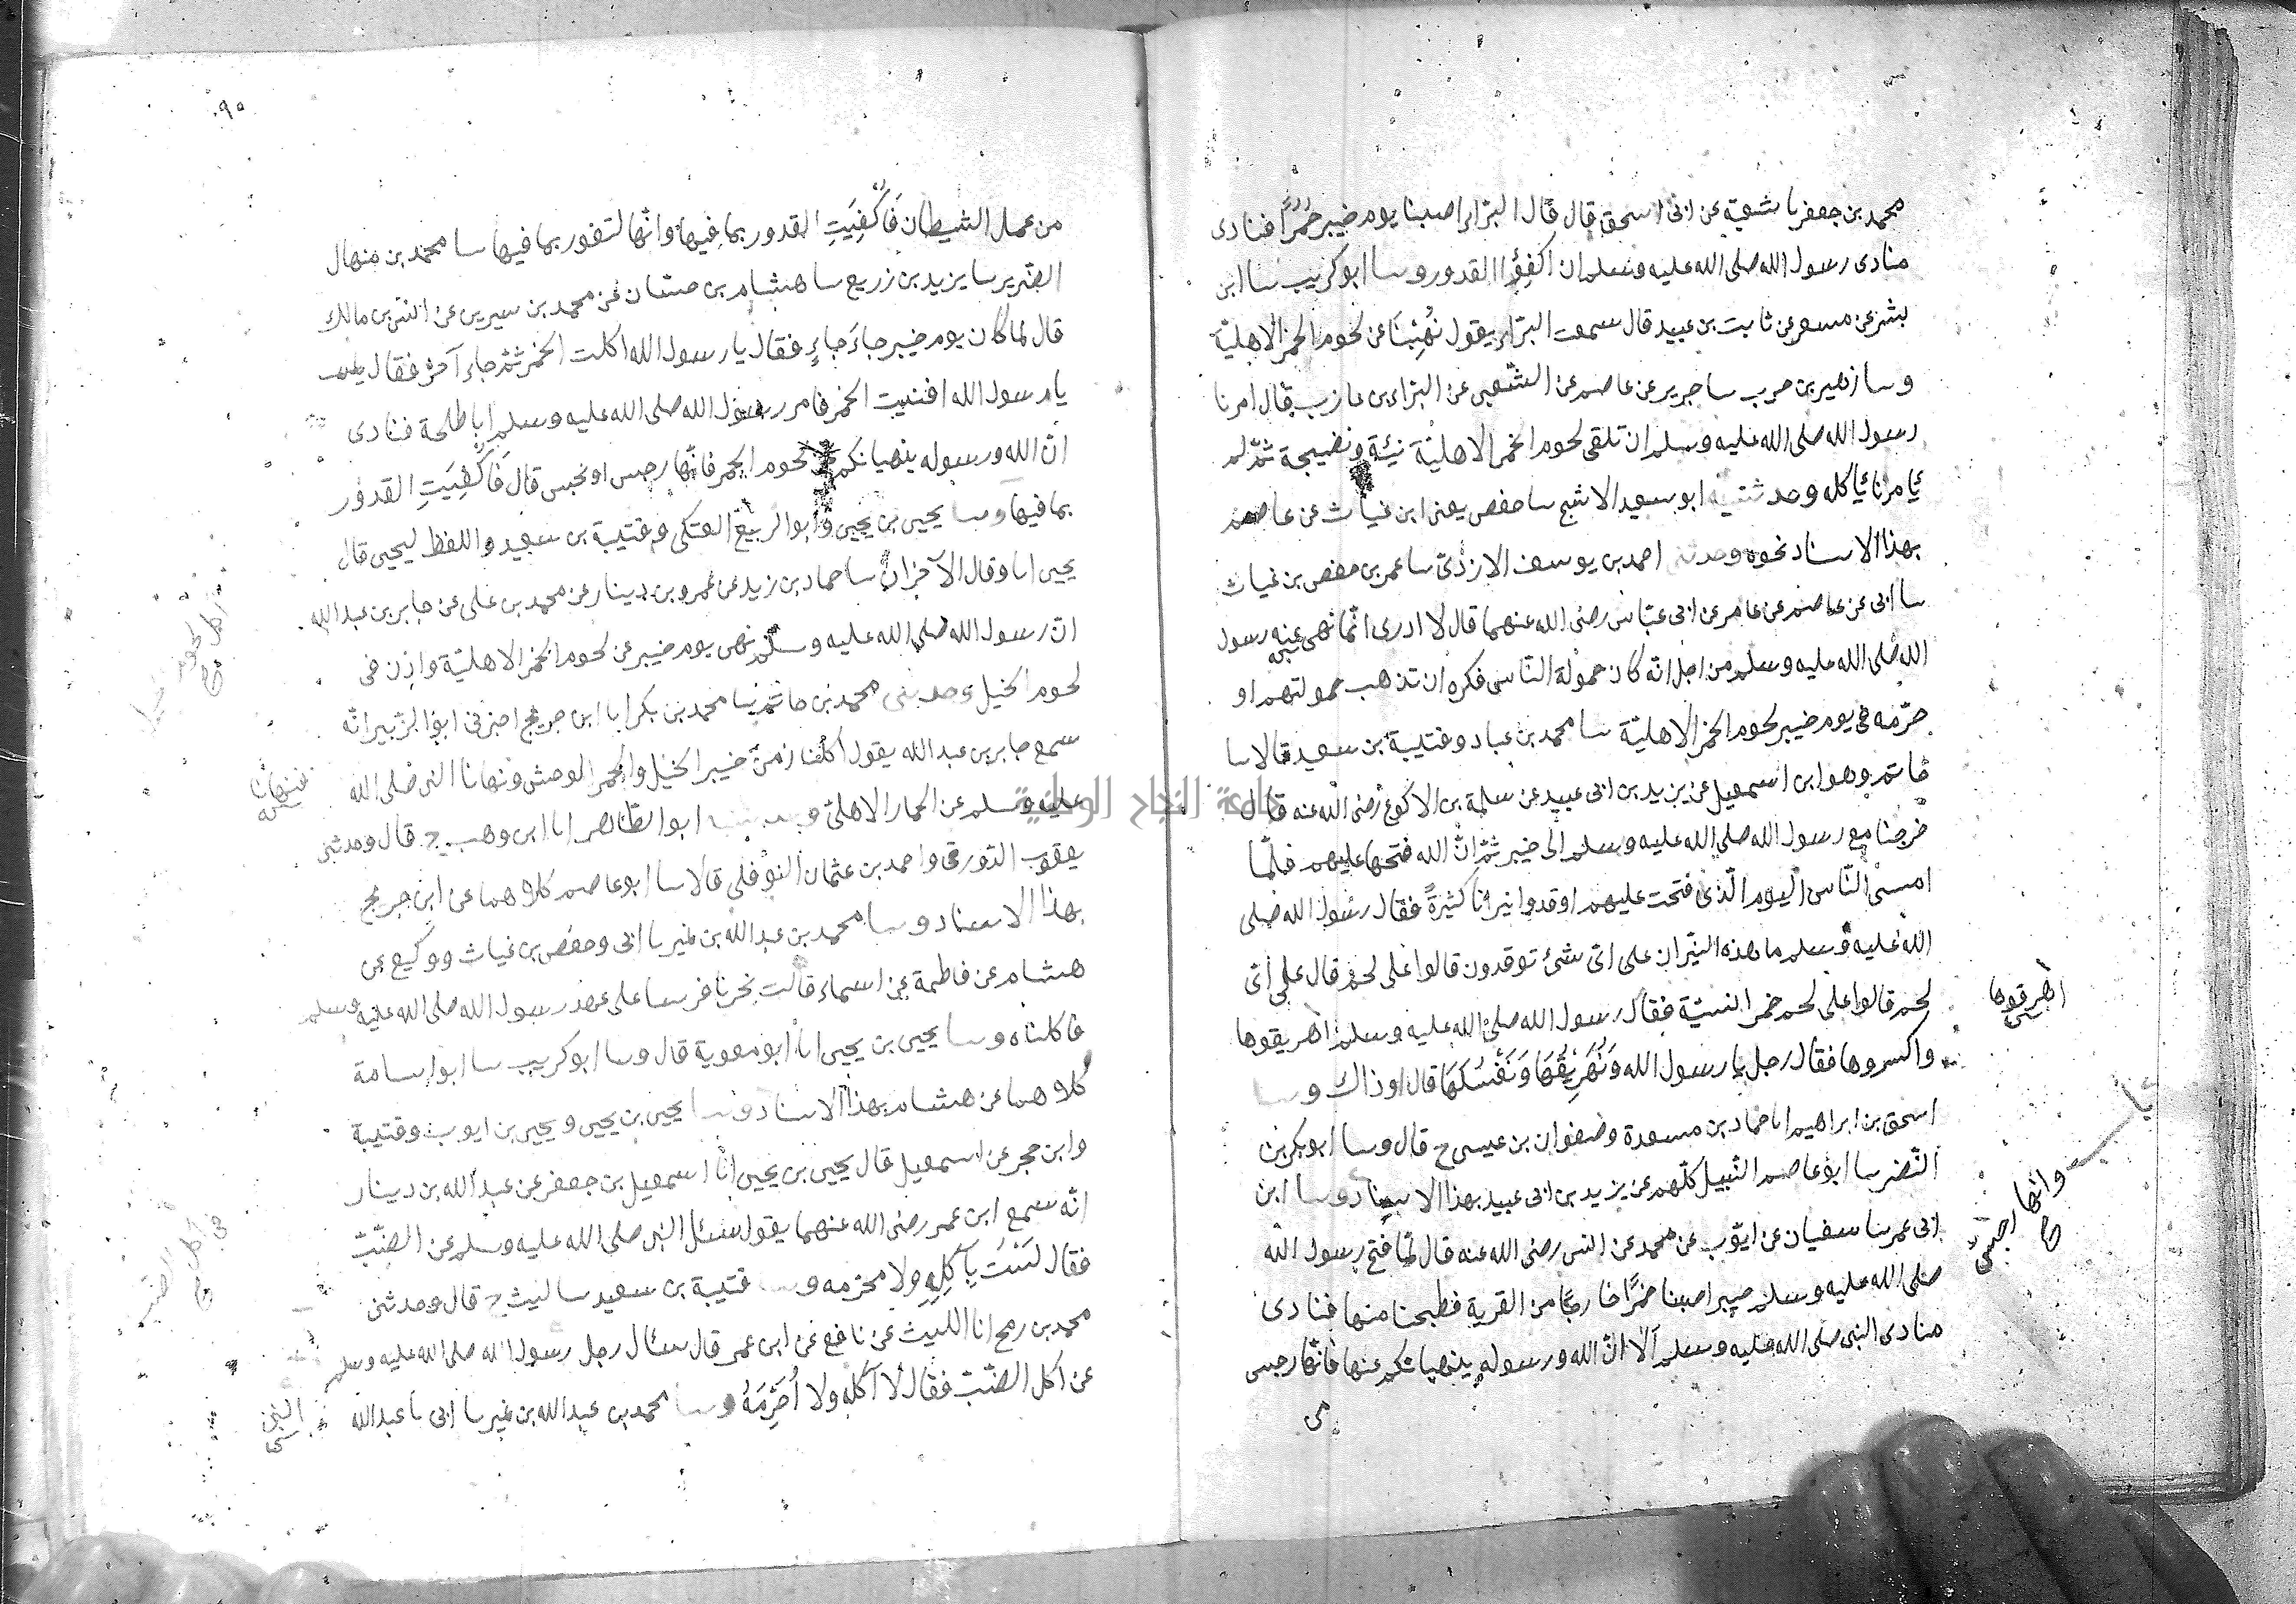 محمد بن جعفر نا شعبة عن ابى اسحق قال قال البراء اصبنا يوم خيبر حُمُرًا فنادى
منادى رسول الله صلى الله عليه وسلم ان اكفؤا القدور وسا ابو كريب سا ابن
بشر عن مسعر عن ثابت بن عبيد قال سمعت البراء يقول نُهِينَا عن لحوم الحمر الاهلية
وسا زهير بن حرب سا جرير عن عاصم عن الشعبى عن البراء بن عازب قال امرنا
رسول الله صلى الله عليه وسلم ان نلقى لحوم الحمر الاهلية نيئة ونضيجة ثم لم
يأمرنا بأكله وحدثنيه ابو سعيد الاشج سا حفص يعنى ابن غياث عن عاصم
بهذا الاسناد نحوه وحدثنى احمد بن يوسف الازدى سا عمر بن حفص بن غياث
سا ابى عن عاصم عن عامر عن ابن عباس رضى الله عنهما قال لا ادرى انما نهى عنه رسول
الله صلى الله عليه وسلم من اجل انه كان حمولة الناس فكره ان تذهب حمولتهم او
حرّمه فى يوم خيبر لحوم الحمر الاهلية سا محمد بن عباد وقتيبة بن سعيد قالا سا
حاتم وهو ابن اسمعيل عن يزيد بن ابى عبيد عن سلمة بن الاكوع رضى الله عنه قال
خرجنا مع رسول الله صلى الله عليه وسلم الى خيبر ثم انّ الله فتحها عليهم فلمّا
امسى النّاس اليوم الّذى فتحت عليهم اوقدوا نيرانا كثيرةً فقال رسول الله صلى
الله عليه وسلم ما هذه النيران على اى شئ توقدون قالوا على لحم قال على اى
لحم قالوا على لحم حمر انسيّة فقال رسول الله صلى الله عليه وسلم اهريقوها
واكسروها فقال رجل يا رسول الله وَنُهَرِيْقُهَا وَنَغْسِلُهَا قال او ذاك وسا
اسحق بن ابراهيم انا حماد بن مسعدة وصفوان بن عيسى ح قال وسا ابو بكر بن
النّضر سا ابو عاصم النّبيل كلّهم عن يزيد بن ابى عبيد بهذا الاسناد وسا ابن
ابى عمر سا سفيان عن ايّوب عن محمد عن انس رضى الله عنه قال لمّا فتح رسول الله
صلى الله عليه وسلم خيبر اصبنا حمرًا خارجًا من القرية فطبخنا منها فنادى
منادى النبى صلى الله عليه وسلم ألا انّ الله ورسوله ينهيانكم عنها فانّها رجس
اهرقوها
وانها رجس
من
٩٠
من عمل الشيطان فَأُكْفِيَتِ القدور بما فيها وانّها لتفور بما فيها سا محمد بن منهال
الضّرير سا يزيد بن زريع سا هشام بن حسّان عن محمد بن سيرين عن انس بن مالك
قال لما كان يوم خيبر جاءَ جاءٍ فقال يا رسول الله اكلت الحمر ثم جاء آخر فقال
يا رسول الله افنيت الحمر فامر رسول الله صلى الله عليه وسلم ابا طلحة فنادى
انّ الله ورسوله ينهيانكم عن لحوم الحمر فانّها رجس او نجس قال فَأُكْفِيَتِ القدور
بما فيها وسا يحيى بن يحيى وابو الربيع العتكى وقتيبة بن سعيد واللفظ ليحيى قال
يحيى انا وقال الآخران سا حماد بن زيد عن عمرو بن دينار عن محمد بن على عن جابر بن عبد الله
ان رسول الله صلى الله عليه وسلم نهى يوم خيبر عن لحوم الحمر الاهليّة واذن فى
لحوم الخيل وحدثنى محمد بن حاتم نبا محمد بن بكر انا ابن جريج اخبرنى ابو الزّبير انّه
سمع جابر بن عبد الله يقول اكلنا زمنَ خيبر الخيل والحمر الوحش ونهانا النبى صلى الله
عليه وسلم عن الحمار الاهلىّ ابو الطّاهر انا ابن وهب ح قال وحدثنى
يعقوب الدّورقى واحمد بن عثمان النّوفلى قالا سا ابو عاصم كلاهما عن ابن جريج
بهذا الاسناد وسا محمد بن عبد الله بن نمير نا ابى وحفص بن غياث ووكيع عن
هشام عن فاطمة عن اسماء قالت نحرنا فرسا على عهد رسول الله صلى الله عليه وسلم
فاكلناه وسا يحيى بن يحيى انا ابو معوية قال وسا ابو كريب سا ابو اسامة
كلاهما عن هشام بهذا الاسناد وسا يحيى بن يحيى ويحيى بن ايوب وقتيبة
وابن حجر عن اسمعيل قال يحيى بن يحيى انا اسمعيل بن جعفر عن عبد الله بن دينار
انّه سمع ابن عمر رضى الله عنهما يقول سئل النبى صلى الله عليه وسلم عن الضّبّ
فقال لَسْتُ بآكله ولا محرّمه وسا قتيبة بن سعيد سا ليث ح قال وحدثنى
محمد بن رمح انا الليث عن نافع عن ابن عمر قال سئال رجل رسول الله صلى الله عليه وسلم
عن اكل الضّبّ فقال لا آكله ولا أُحَرِّمَهُ وسا محمد بن عبد الله بن نمير سا ابى نا عبد الله
فنهانا
النبى
جامعة النجاح الوطنية